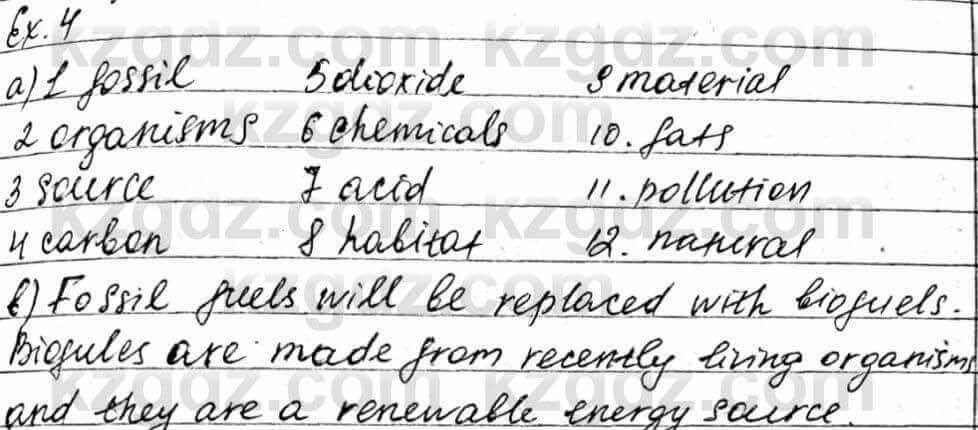 Ex. 4
a) 1 fossil 5 dioxide 9 material
2 organisms 6 chemicals 10. fats
3 source 7 acid 11. pollution
4 carbon 8 habitat 12. natural
b) Fossil fuels will be replaced with biofuels.
Biofules are made from recently living organism,
and they are a renewable energy source.
kzgdz.com